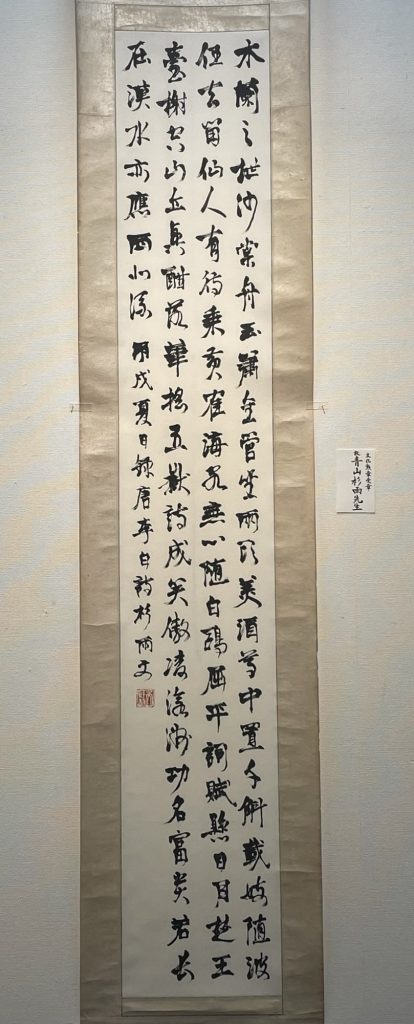 木蘭之枻沙棠舟玉簫金管坐兩頭美酒尊中置千斛載妓隨波
任去留仙人有待乘黄隺海客無心隨白鷗屈平詞賦懸日月楚王
臺榭空山丘興酣落筆搖五嶽詩成笑傲凌滄洲功名富貴若長
在漢水亦應西北流 丙戌夏日録唐李白詩 杉雨
文化勲章受章
故 青山杉雨先生